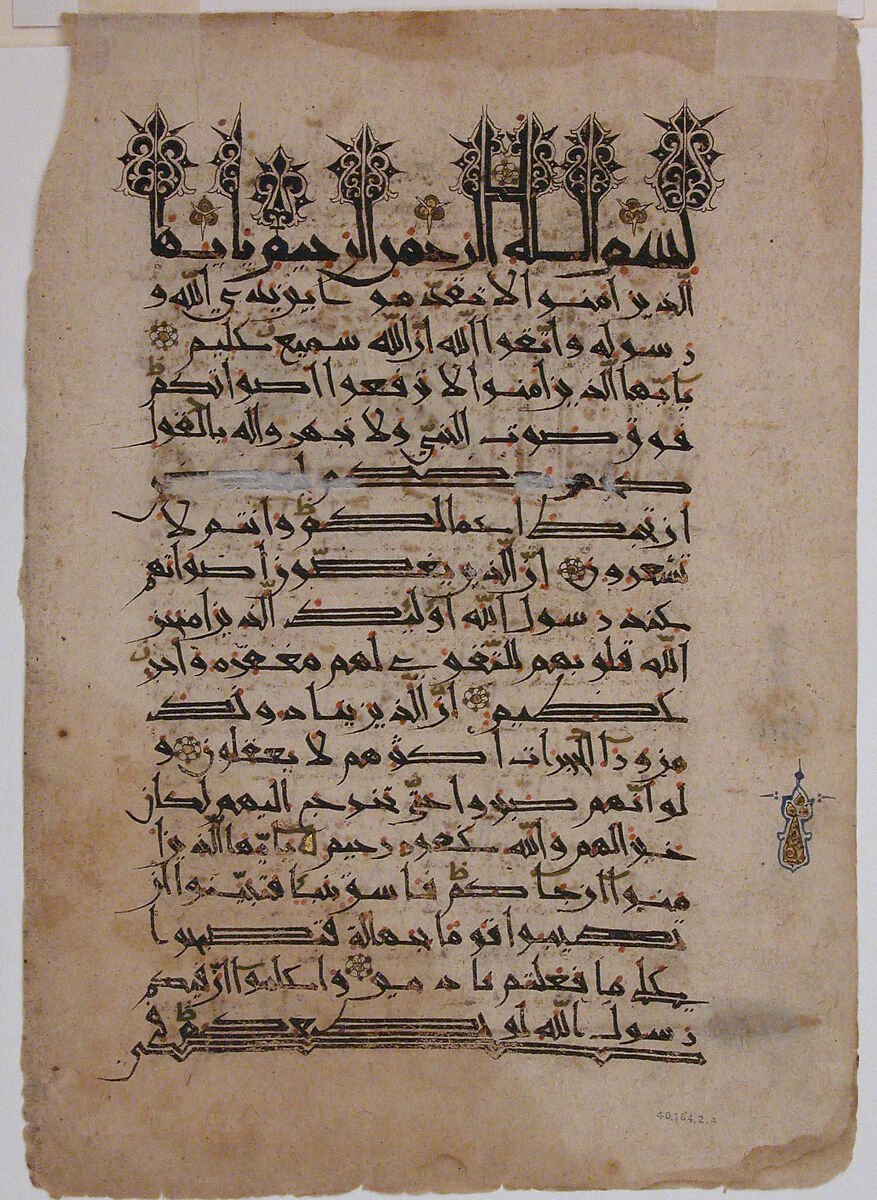 بسم الله الرحمن الرحيم يايها
الذين امنوا لا تقدموا بين يدي الله و
رسوله واتقوا الله انّ الله سميع عليم
يايّها الّذين امنوا لا ترفعوا اصواتكم
فوق صوت النبيّ ولا تجهروا له بالقول
كجهر بعضكم لبعض
ان تحبط اعمالكم وانتم لا
تشعرون انّ الّذين يغضّون اصواتهم
عند رسول الله اولئك الّذين امتحن
الله قلوبهم للتّقوى لهم مغفرة واجر
عظيم انّ الّذين ينادونك
من ورا الحجرات اكثرهم لا يعقلون و
لو انّهم صبروا حتّى تخرج اليهم لكان
خيرا لهم والله غفور رحيم يايّها الّذين ا
منوا ان جاكم فاسق بنبا فتبيّنوا ان
تصيبوا قوما بجهالة فتصبحوا
على ما فعلتم نادمين واعلموا انّ فيكم
رسول الله لو يطيعكم في
40.164.2.a